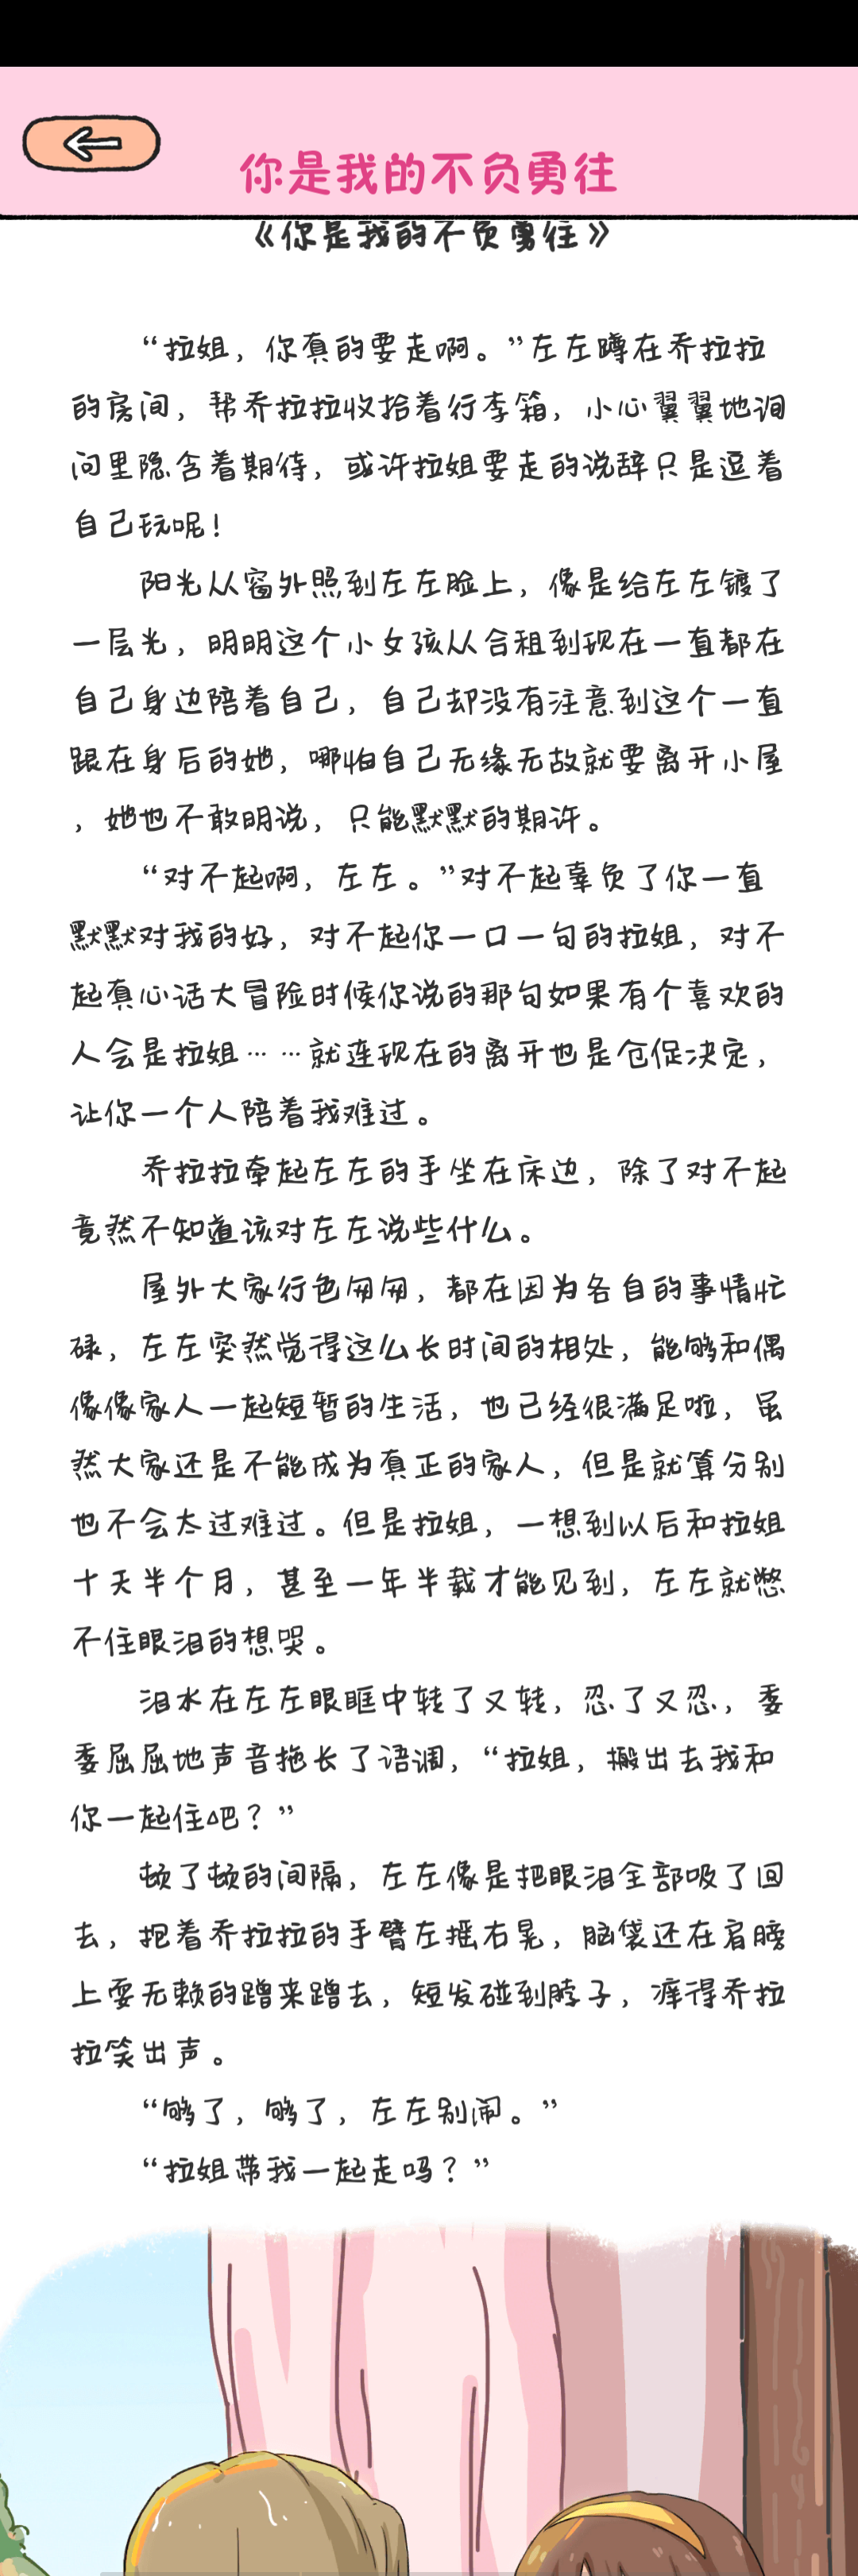 你是我的不负勇往
《你是我的不负勇往》
“拉姐，你真的要走啊。”左左蹲在乔拉拉
的房间，帮乔拉拉收拾着行李箱，小心翼翼地询
问里隐含着期待，或许拉姐要走的说辞只是逗着
自己玩呢！
阳光从窗外照到左左脸上，像是给左左镀了
一层光，明明这个小女孩从合租到现在一直都在
自己身边陪着自己，自己却没有注意到这个一直
跟在身后的她，哪怕自己无缘无故就要离开小屋
，她也不敢明说，只能默默的期许。
“对不起啊，左左。”对不起辜负了你一直
默默对我的好，对不起你一口一句的拉姐，对不
起真心话大冒险时候你说的那句如果有个喜欢的
人会是拉姐……就连现在的离开也是仓促决定，
让你一个人陪着我难过。
乔拉拉牵起左左的手坐在床边，除了对不起
竟然不知道该对左左说些什么。
屋外大家行色匆匆，都在因为各自的事情忙
碌，左左突然觉得这么长时间的相处，能够和偶
像像家人一起短暂的生活，也已经很满足啦，虽
然大家还是不能成为真正的家人，但是就算分别
也不会太过难过。但是拉姐，一想到以后和拉姐
十天半个月，甚至一年半载才能见到，左左就憋
不住眼泪的想哭。
泪水在左左眼眶中转了又转，忍了又忍，委
委屈屈地声音拖长了语调，“拉姐，搬出去我和
你一起住吧？”
顿了顿的间隔，左左像是把眼泪全部吸了回
去，把着乔拉拉的手臂左摇右晃，脑袋还在肩膀
上耍无赖的蹭来蹭去，短发碰到脖子，痒得乔拉
拉笑出声。
“够了，够了，左左别闹。”
“拉姐带我一起走吗？”